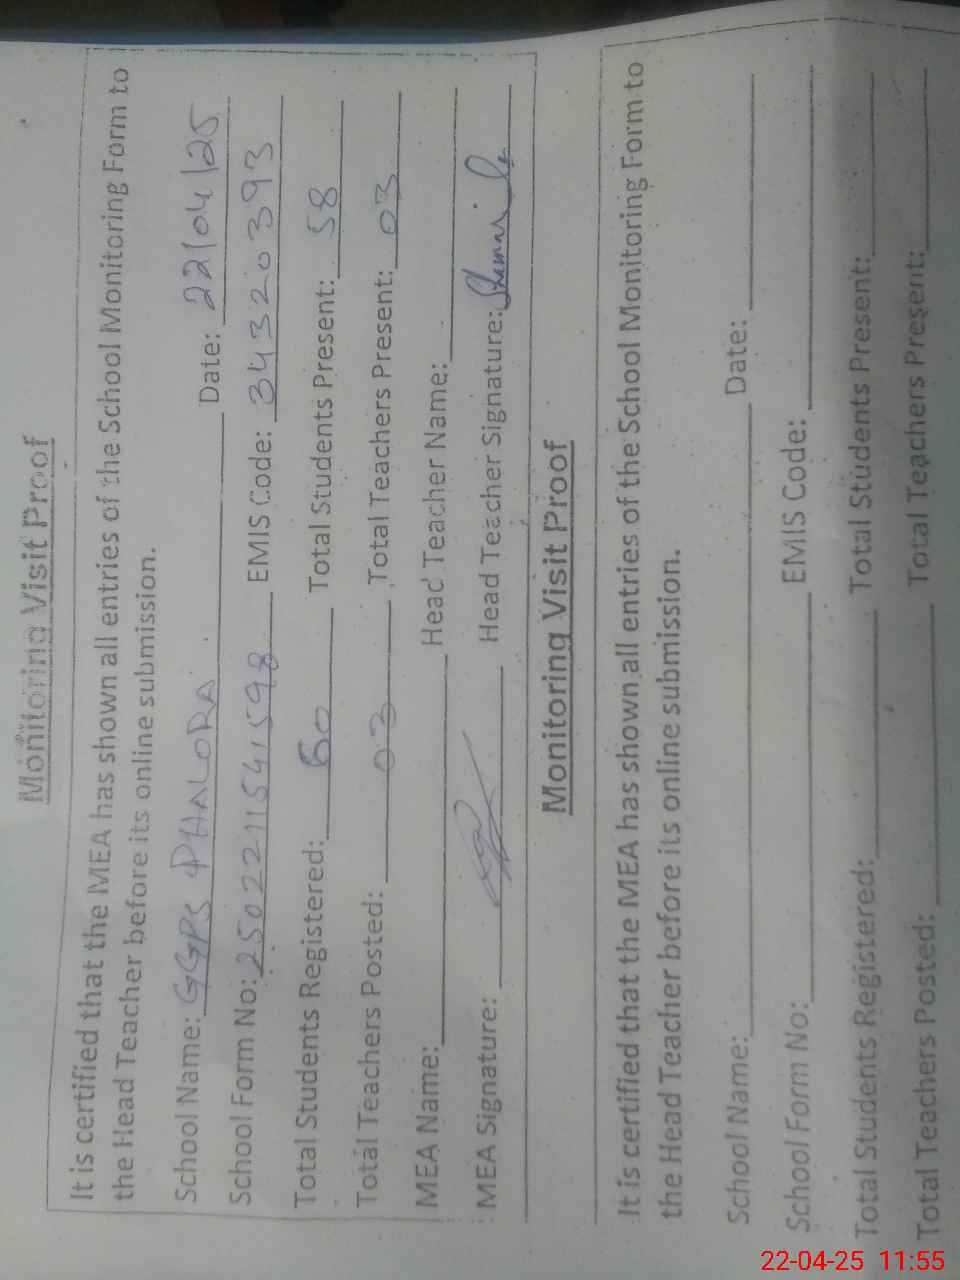 Monitoring Visit Proof
It is certified that the MEA has shown all entries of the School Monitoring Form to
the Head Teacher before its online submission.
School Name: GGPS PHALORA Date: 22/04/25
School Form No: 2502211541598 EMIS Code: 34320393
Total Students Registered: 60 Total Students Present: 58
Total Teachers Posted: 03 Total Teachers Present: 03
MEA Name: Head Teacher Name:
MEA Signature: Head Teacher Signature:
Monitoring Visit Proof
It is certified that the MEA has shown all entries of the School Monitoring Form to
the Head Teacher before its online submission.
School Name: Date:
School Form No: EMIS Code:
Total Students Registered: Total Students Present:
Total Teachers Posted: Total Teachers Present:
22-04-25 11:55